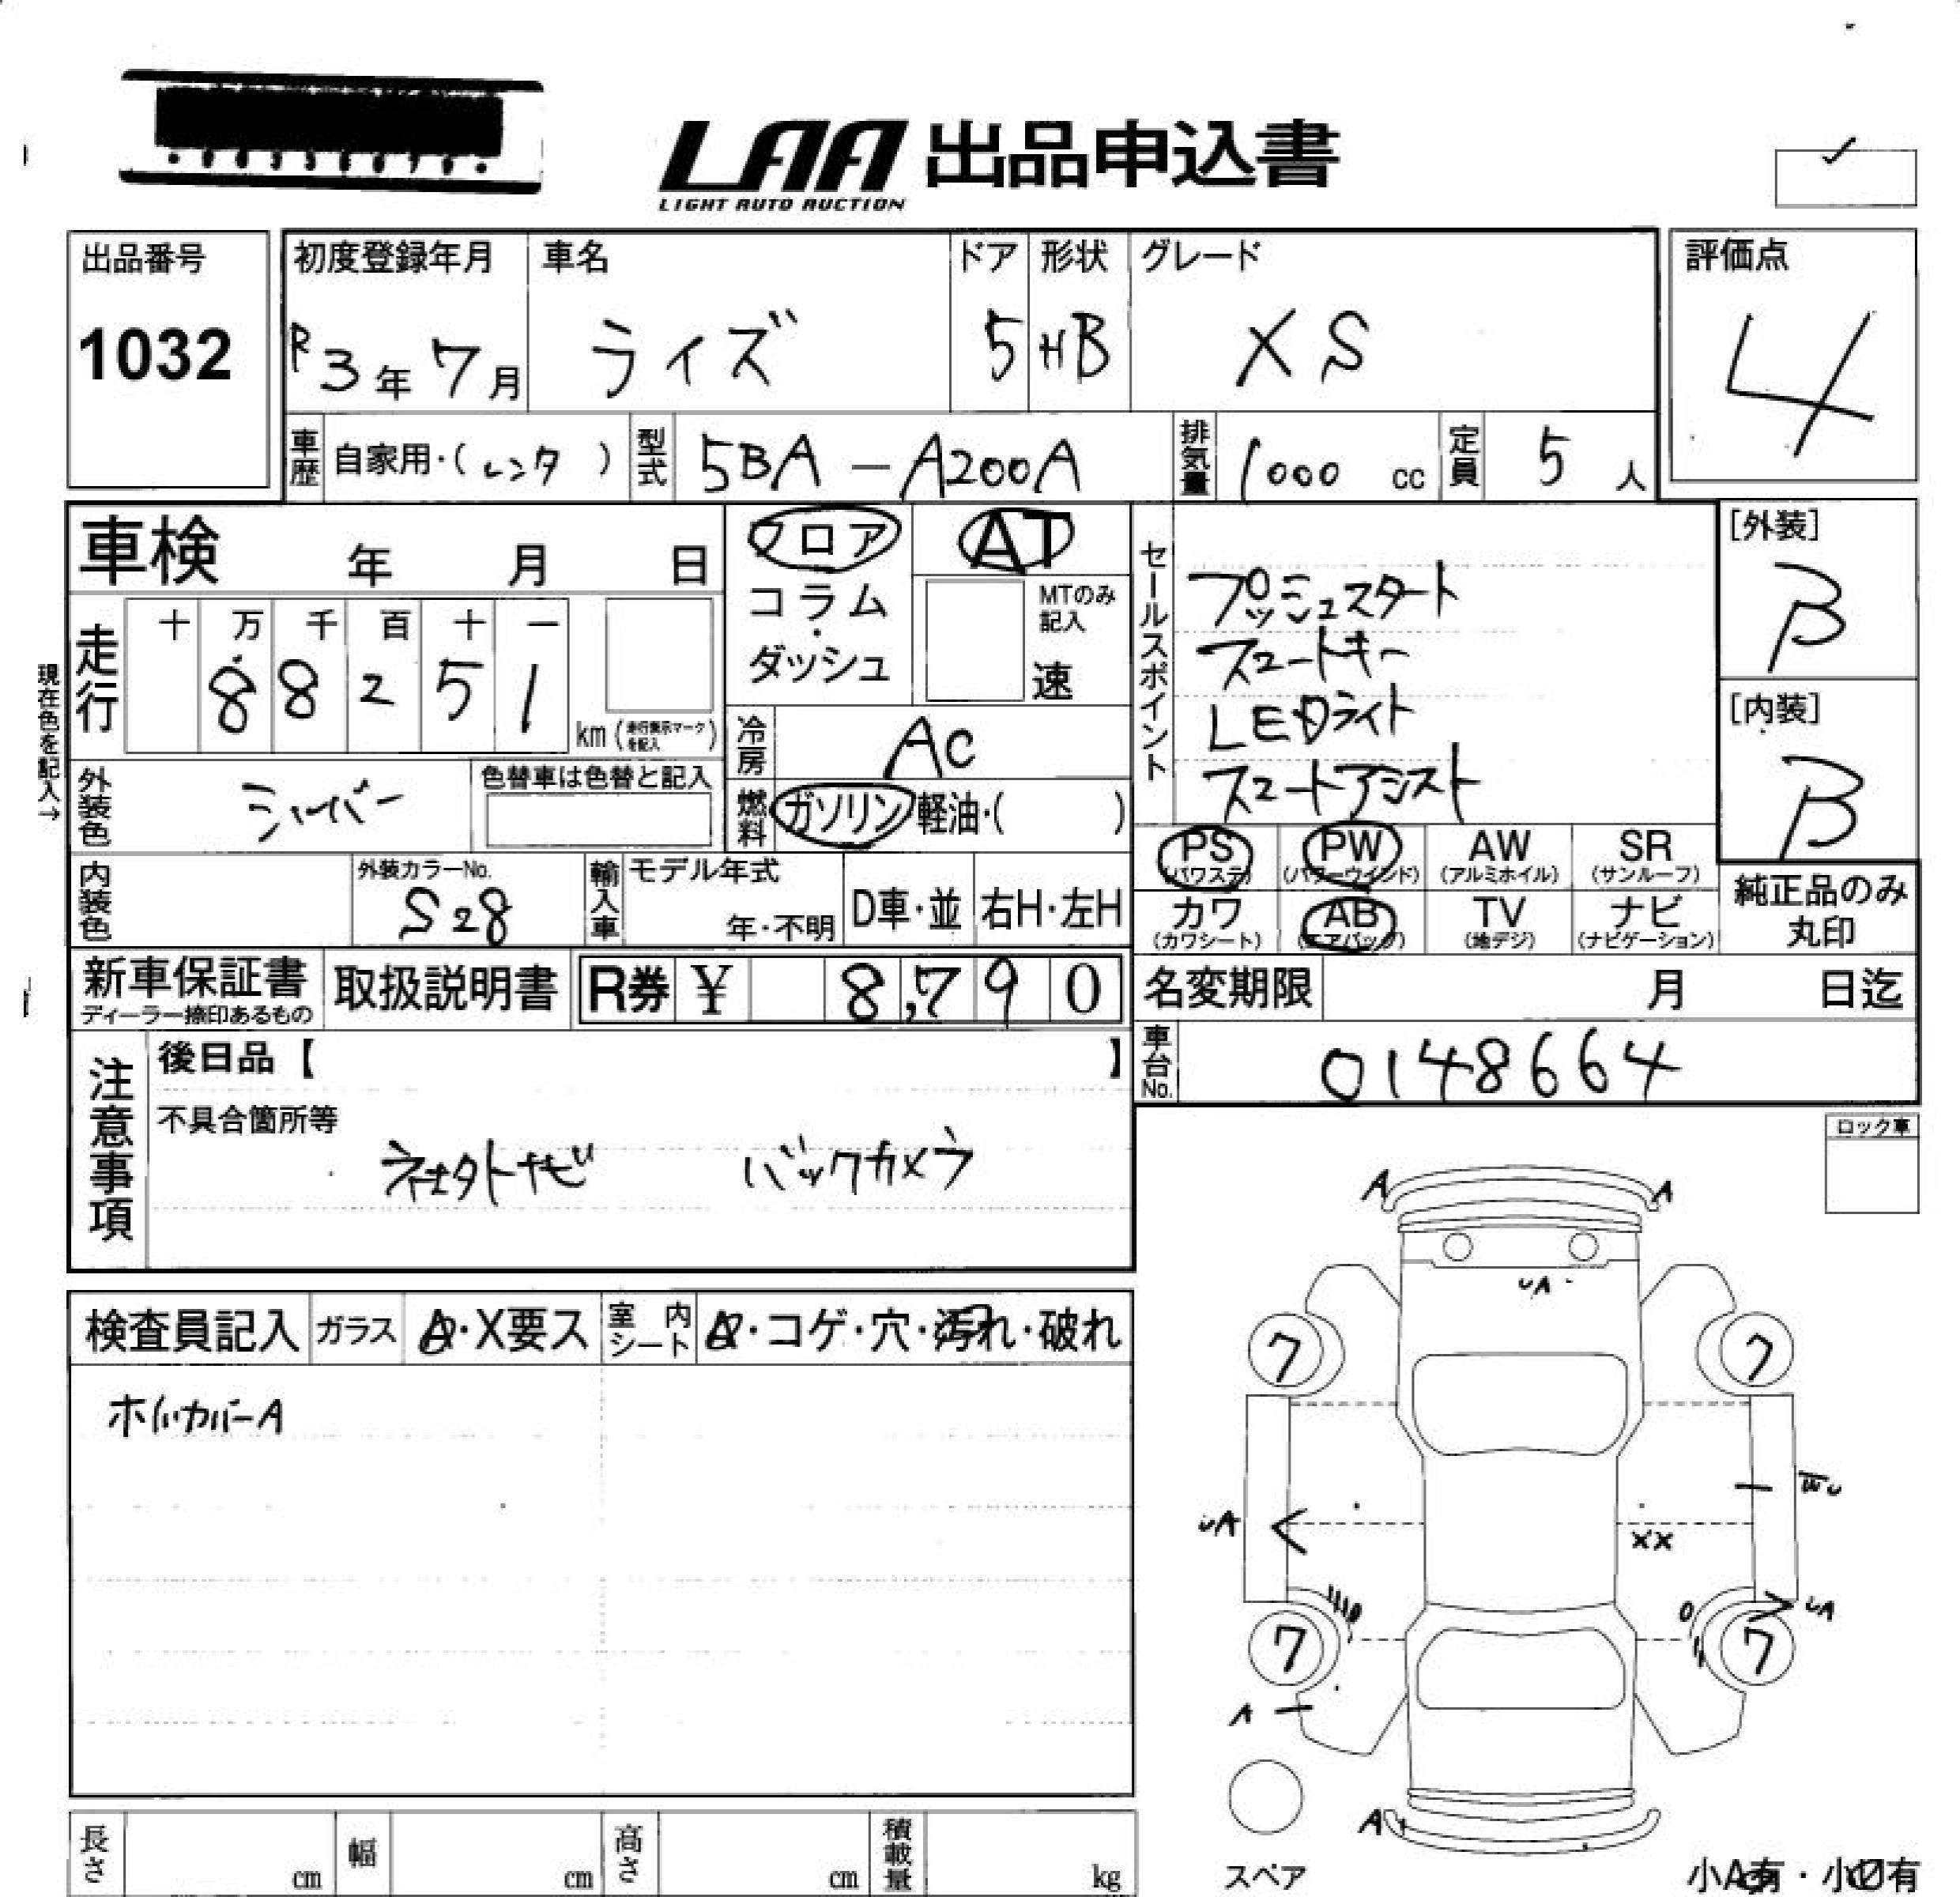 LAA 出品申込書
LIGHT AUTO AUCTION
出品番号
1032
初度登録年月
R3年7月
車名
ライズ
ドア
5
形状
HB
グレード
XS
評価点
4
車歴
自家用・(レンタ)
型式
5BA-A200A
排気量
1000 cc
定員
5人
車検 年 月 日
フロア
コラム
・
ダッシュ
AT
MTのみ
記入
速
セールスポイント
プッシュスタート
スマートキー
LEDライト
スマートアシスト
[外装]
B
[内装]
B
現在色を記入→
走行
十 万 千 百 十 一
8 8 2 5 1
km (走行表示マークを記入)
冷房
AC
外装色
シルバー
色替車は色替と記入
燃料
ガソリン・軽油・( )
PS
(パワステ)
PW
(パワーウインド)
AW
(アルミホイル)
SR
(サンルーフ)
カワ
(カワシート)
AB
(エアバッグ)
TV
(地デジ)
ナビ
(ナビゲーション)
純正品のみ
丸印
内装色
外装カラーNo.
S28
輸入車
モデル年式
年・不明
D車・並
右H・左H
新車保証書
ディーラー捺印あるもの
取扱説明書
R券 ¥ 8,790
名変期限 月 日迄
車台No.
0148664
注意事項
後日品【 】
不具合箇所等
バックカメラ
ロック車
検査員記入
ガラス
A・X要ス
室内シート
A・コゲ・穴・汚れ・破れ
ホイルカバーA
A
A
UA
7
7
UA
WU
XX
UA
7
7
A
A
スペア
小A有・小U有
長さ cm
幅 cm
高さ cm
積載量 kg